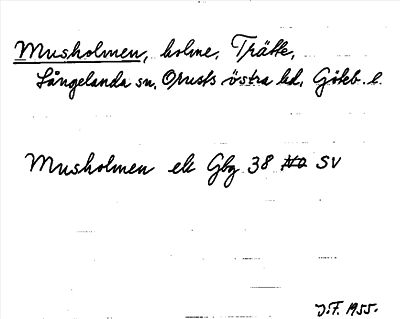 Musholmen, holme, Trätte,
Långelanda sn. Orusts östra hd, Göteb. l.
Musholmen ek Gbg 38 NO SV
J.F. 1955.